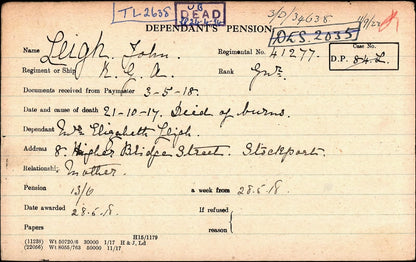 TL 2638
DEAD
3/D/34638
DEPENDANT'S PENSION
DLS. 2035
Name Leigh John.
Regimental No. 41277.
Case No.
D.P.
Regiment or Ship R. G. A.
Rank Gnr
Documents received from Paymaster 3-5-18.
Date and cause of death 21-10-17. Died of burns.
Dependant Mrs Elizabeth Leigh.
Address 8. Higher Bridge Street. Stockport.
Relationship Mother.
Pension 13/6 a week from 28.5.18.
Date awarded 28.5.18. If refused
Papers reason
H15/1179
(11238) Wt 50720/6 30000 1/17 H & J, Ld
(22056) Wt 8055/763 50000 11/17 "